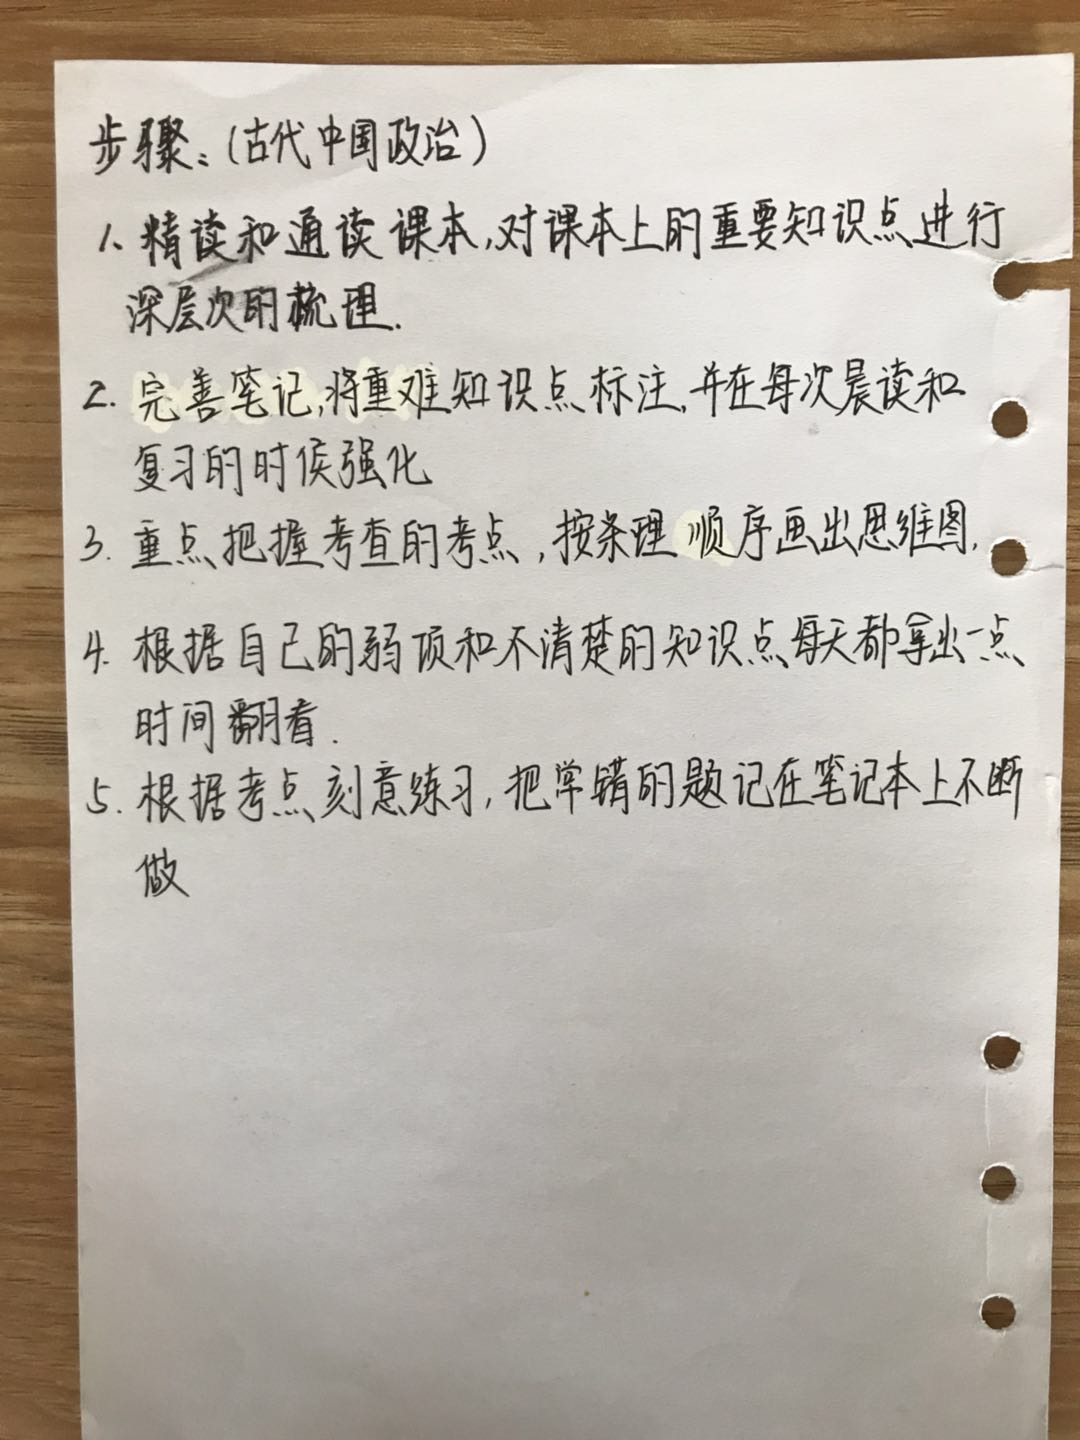 步骤:(古代中国政治)
1、精读和通读课本,对课本上的重要知识点进行
深层次的梳理.
2. 完善笔记,将重难知识点标注,并在每次晨读和
复习的时候强化
3. 重点把握考查的考点,按条理顺序画出思维图.
4. 根据自己的弱项和不清楚的知识点每天都拿出一点
时间翻看.
5. 根据考点刻意练习,把常错的题记在笔记本上不断
做